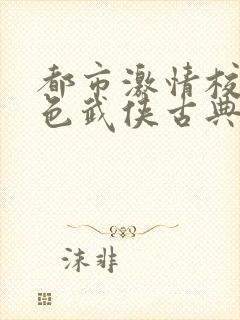 都市激情校
色武侠古典
沫非